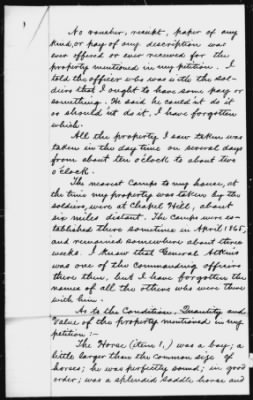 No voucher, receipt, paper of any
kind, or pay of any description was
ever offered or ever received for the
property mentioned in my petition. I
told the officer who was with the sol-
diers that I ought to have some pay or
something. He said he could'nt do it
or should'nt do it, I have forgotten
which.
All the property I saw taken was
taken in the day time on several days
from about ten o'clock to about two
o'clock.
The nearest Camps to my house, at
the time my property was taken by the
soldiers, were at Chapel Hill, about
six miles distant. The camps were es-
tablished there sometime in April 1865,
and remained somewhere about three
weeks. I know that General Atkins
was one of the commanding officers
there then, but I have forgotten the
names of all the others who were there
with him.
As to the Condition, Quantity and
Value of the property mentioned in my
petition:-
The Horse (Item 1,) was a bay; a
little larger than the common size of
horses; he was perfectly sound; in good
order; was a splendid saddle horse and